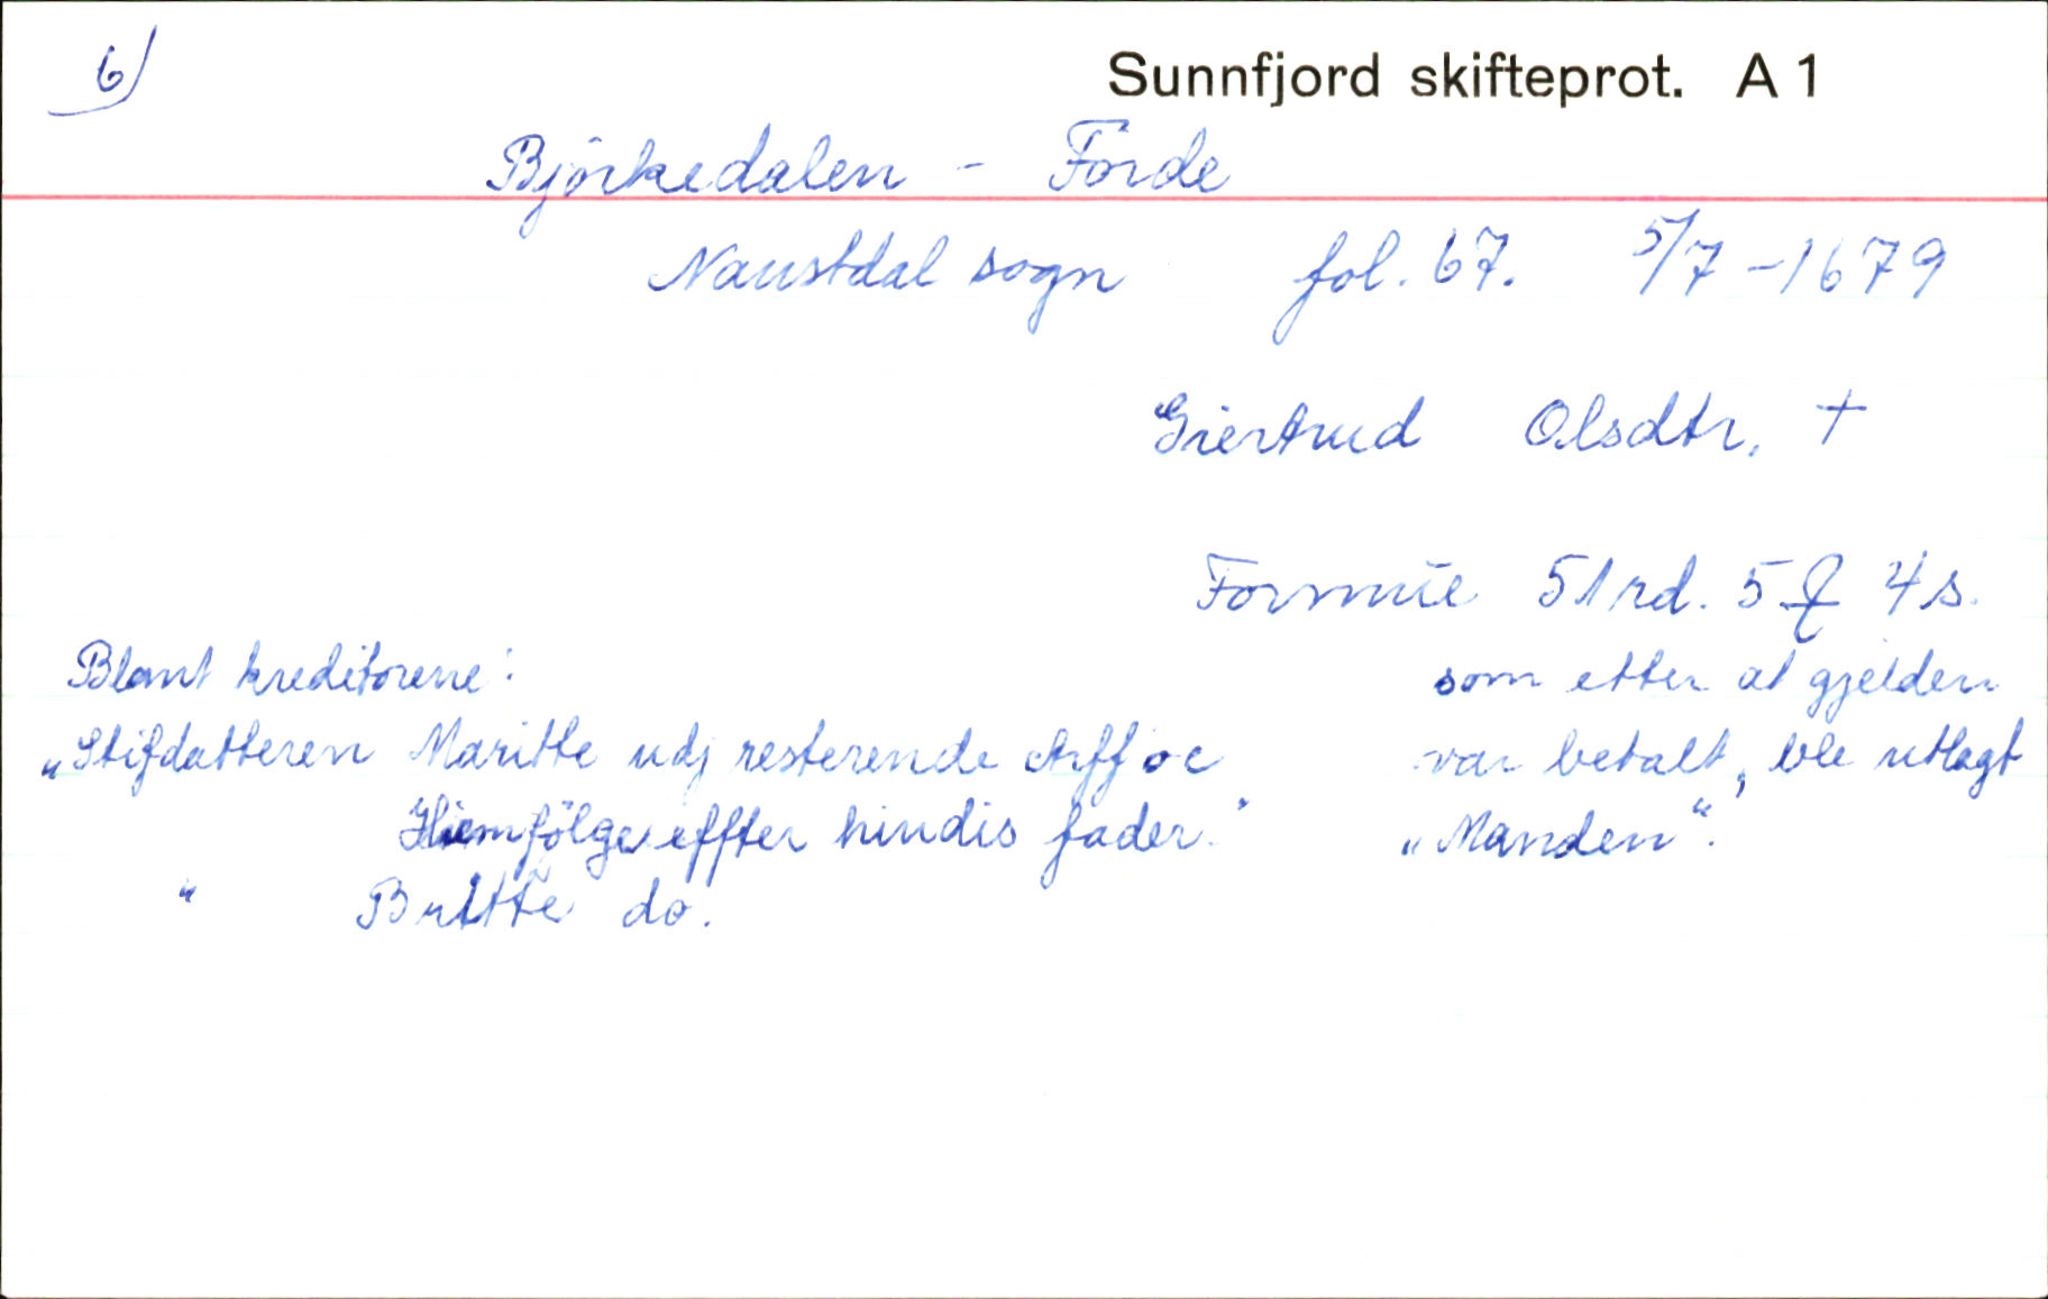 6)
Sunnfjord skifteprot. A 1
Björkedalen - Förde
Naustdal sogn fol. 67. 5/7 - 1679
Giertrud Olsdtr. †
Formue 51 rd. 5 4 s.
som etter at gjelden
var betalt, ble utlagt
„Manden".
Blant kreditorene:
„Stifdatteren Maritte udj resterende Arff oc
Hiemfölge effter hindis fader."
" Britte do.